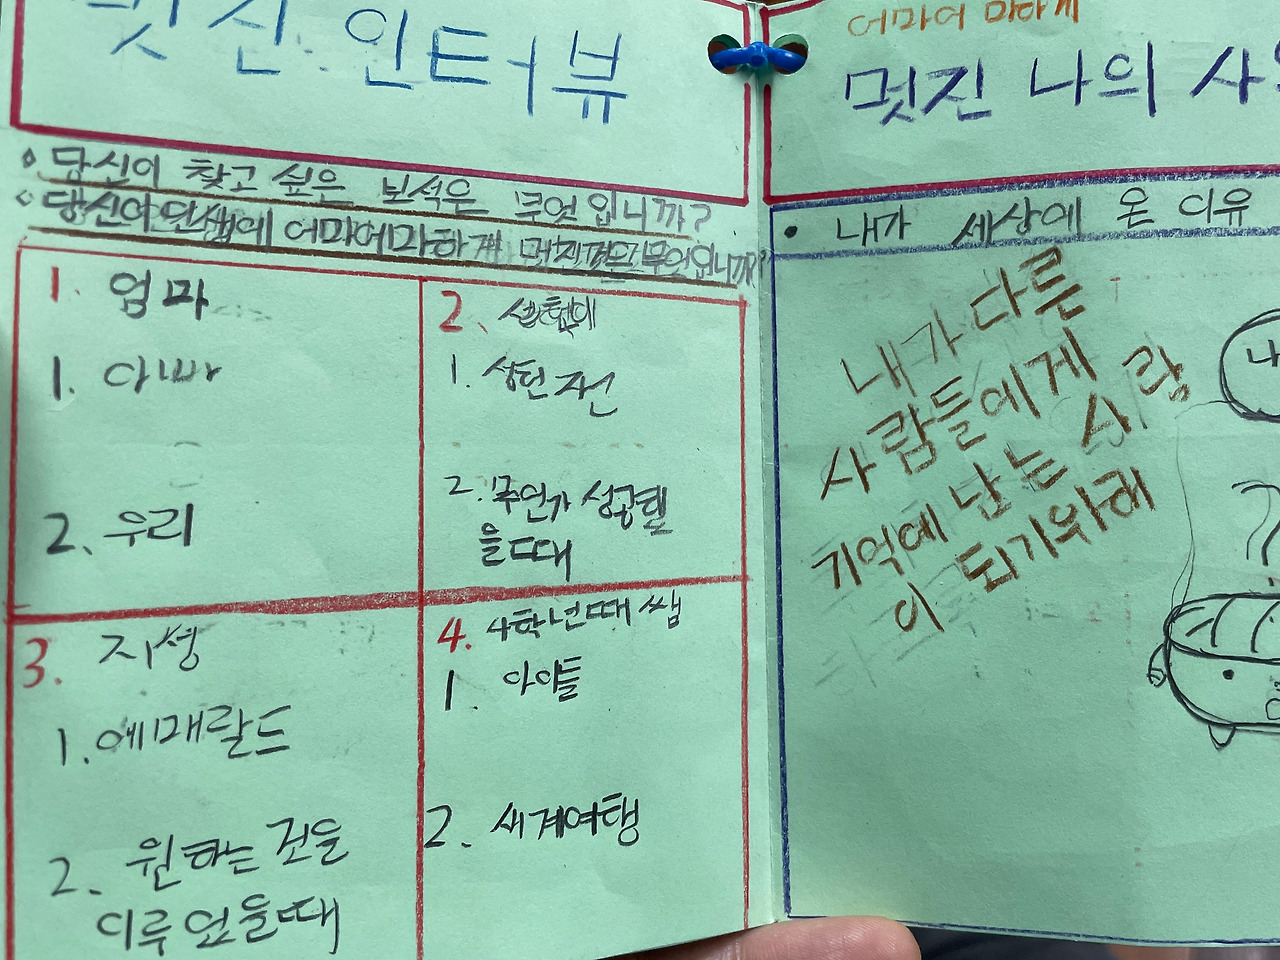 멋진 인터뷰
◇ 당신이 찾고 싶은 보석은 무엇입니까?
◇ 당신의 인생에 어마어마하게 멋진것은 무엇입니까?
1. 엄마
1. 아빠
2. 우리
2.
1.
자신
2. 무언가 성공했
을때
3. 지성
1. 에매랄드
2. 원하는 것을
이루었을때
4. 4학년때 쌤
1. 아이들
2. 세계여행
어마어마하게
멋진 나의
• 내가 세상에 온 이유
내가 다른
사람들에게
기억에 남는 사람
이 되기위해
나
?